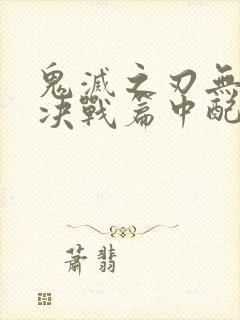 鬼滅之刃無
决戰篇中配
蕭翡